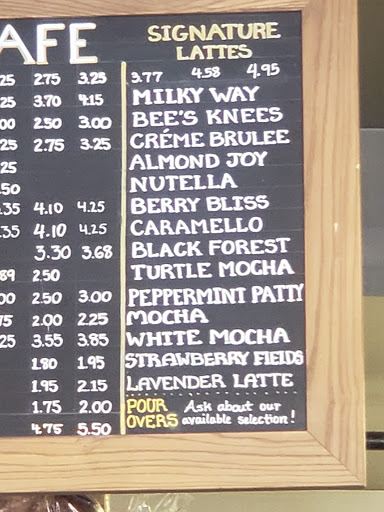 AFE
25 2.75 3.25
25 3.70 4.15
00 2.50 3.00
25 2.75 3.25
25
50
.35 4.10 4.25
.35 4.10 4.25
3.30 3.68
89 2.50
00 2.50 3.00
75 2.00 2.25
25 3.55 3.85
1.80 1.95
1.95 2.15
1.75 2.00
4.75 5.50
SIGNATURE
LATTES
3.77 4.58 4.95
MILKY WAY
BEE'S KNEES
CRÉME BRULEE
ALMOND JOY
NUTELLA
BERRY BLISS
CARAMELLO
BLACK FOREST
TURTLE MOCHA
PEPPERMINT PATTY
MOCHA
WHITE MOCHA
STRAWBERRY FIELDS
LAVENDER LATTE
POUR OVERS
Ask about our
available selection!